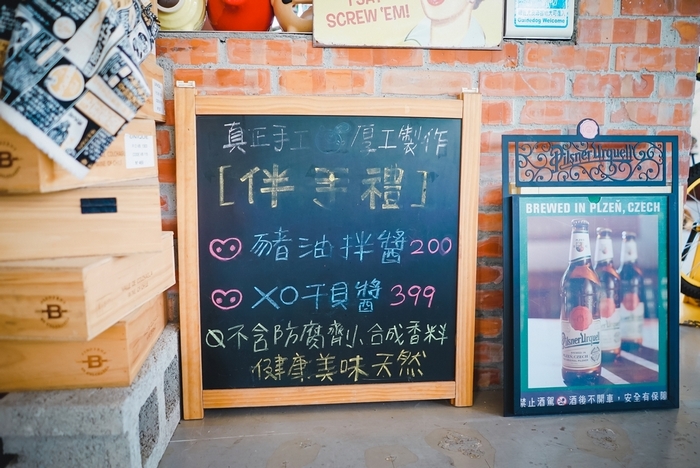 I SA
SCREW 'EM!
Gentledog Welcome!
真正手工 厚工製作
[伴手禮]
豬油拌醬 200
XO干貝醬 399
不含防腐劑、合成香料
健康美味天然
Pilsner Urquell
BREWED IN PLZEŇ, CZECH
禁止酒駕 酒後不開車，安全有保障
B
B
B